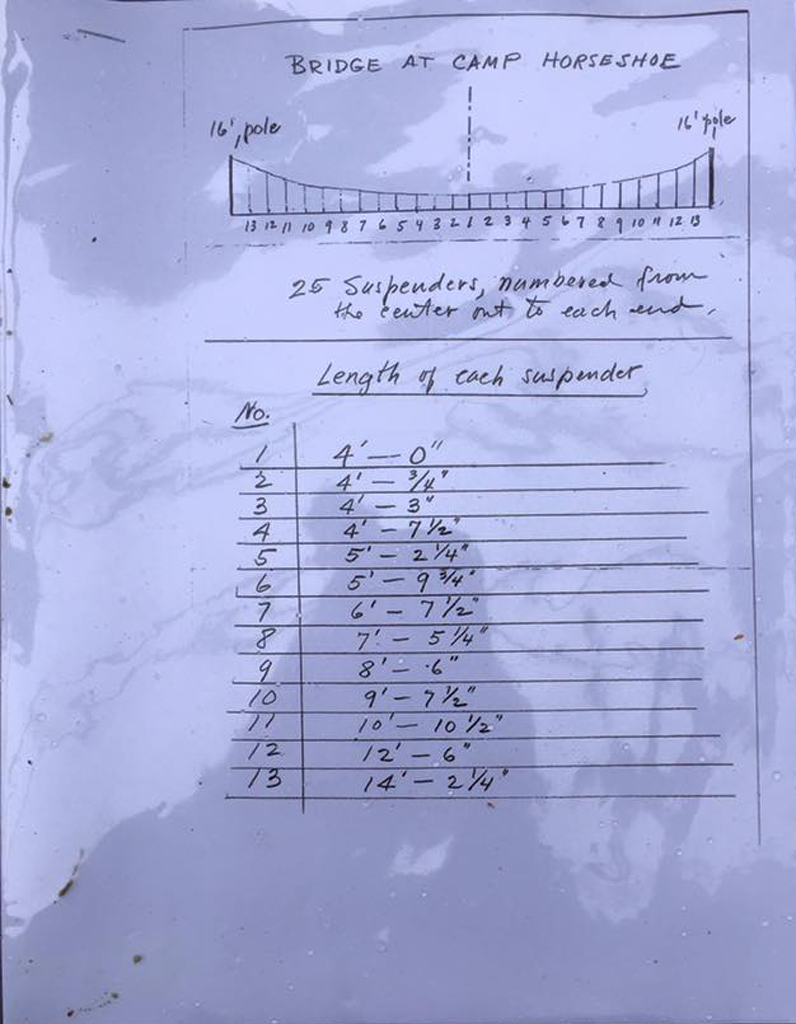 BRIDGE AT CAMP HORSESHOE
16' pole 16' pole
13 12 11 10 9 8 7 6 5 4 3 2 1 2 3 4 5 6 7 8 9 10 11 12 13
25 Suspenders, numbered from
the center out to each end.
Length of each suspender
No.
1 4' — 0"
2 4' — 3/4"
3 4' — 3"
4 4' — 7 1/2"
5 5' — 2 1/4"
6 5' — 9 3/4"
7 6' — 7 1/2"
8 7' — 5 1/4"
9 8' — 6"
10 9' — 7 1/2"
11 10' — 10 1/2"
12 12' — 6"
13 14' — 2 1/4"